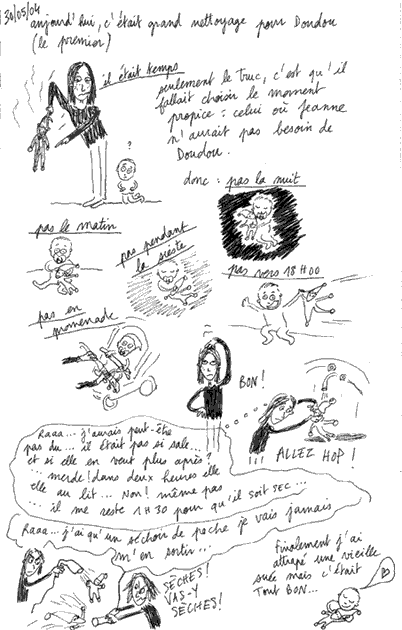 30/05/04
aujourd'hui, c'était grand nettoyage pour Doudou
(le premier)
il était temps
seulement le truc, c'est qu'il
fallait choisir le moment
propice : celui où Jeanne
n'aurait pas besoin de
Doudou.
?
donc : pas la nuit
pas le matin
pas pendant
la sieste
pas vers 18H00
pas en
promenade
BON!
!!! ALLEZ HOP!
Raaa... j'aurais peut-être
pas du... il était pas si sale...
et si elle en veut plus après?
merde! dans deux heures elle
elle au lit... Non! même pas
... il me reste 1H30 pour qu'il soit SEC...
Raaa... j'ai qu'un séchoir de poche je vais jamais
m'en sortir...
SECHES!
VAS-Y
SECHES!
Finalement j'ai
attrapé une vieille
suée mais c'était
Tout BON...